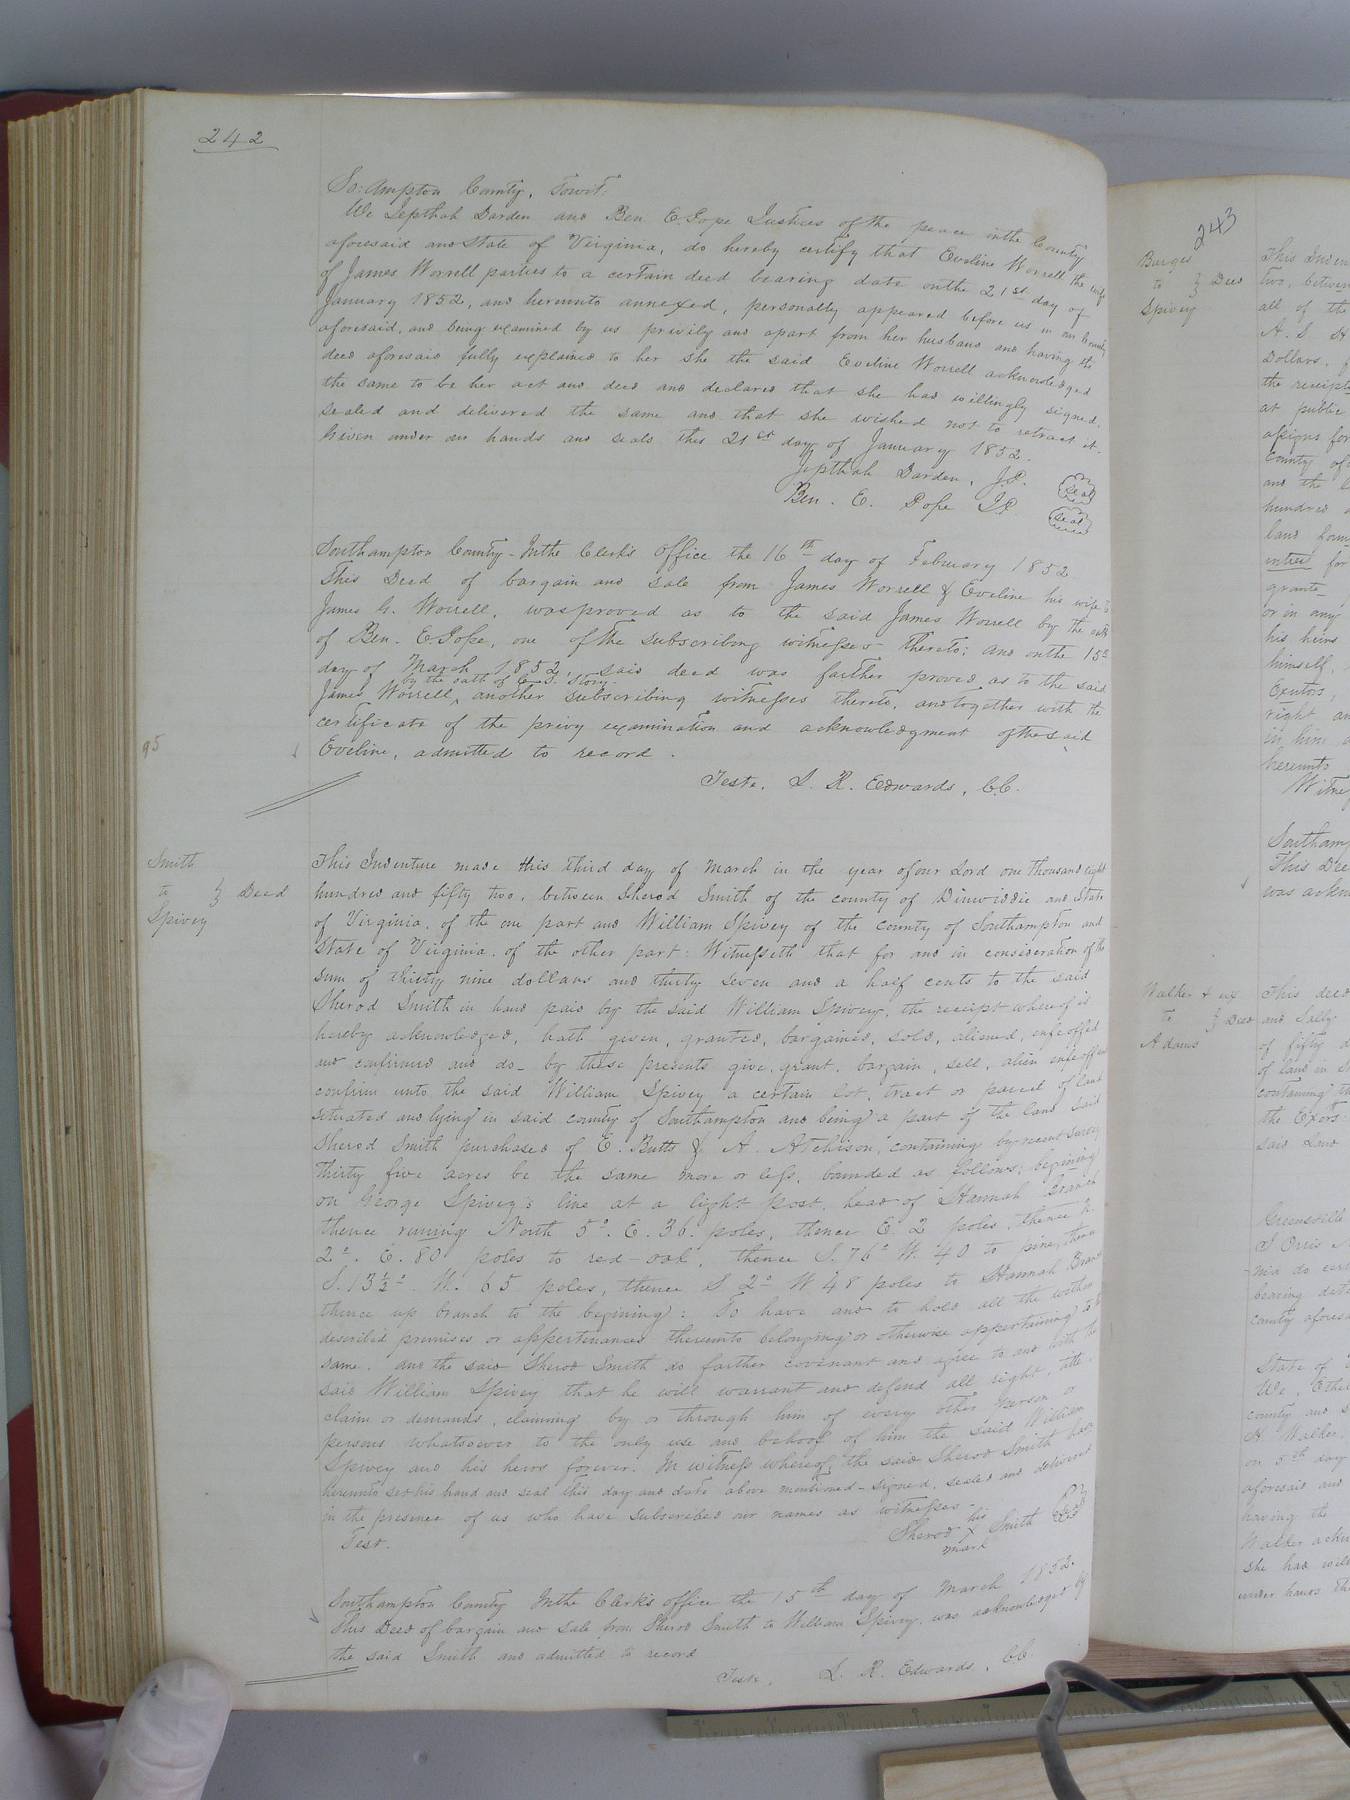 242
So: Ampton County, Towit:
We Jepthah Darden and Ben E. Pope Justices of the peace in the County
aforesaid and State of Virginia, do hereby certify that Eveline Worrell the wife
of James Worrell parties to a certain deed bearing date on the 21st day of
January 1852, and hereunto annexed, personally appeared before us in our County
aforesaid, and being examined by us privily and apart from her husband and having the
deed aforesaid fully explained to her she the said Eveline Worrell acknowledged
the same to be her act and deed and declared that she had willingly signed,
sealed and delivered the same and that she wished not to retract it.
Given under our hands and seals this 21st day of January 1852.
Jepthah Darden, J.P. Seal
Ben. E. Pope J.P. Seal
Southampton County - In the Clerk's Office the 16th day of February 1852
This Deed of bargain and sale from James Worrell & Eveline his wife to
James G. Worrell, was proved as to the said James Worrell by the oath
of Ben. E. Pope, one of the subscribing witnesses thereto; and on the 15th
day of March 1852, said deed was farther proved as to the said
by the oath of Story
James Worrell, ^ another subscribing witnesses thereto, and together with the
certificate of the privy examination and acknowledgment of the said
95
Eveline, admitted to record.
Teste. L. R. Edwards, C.C.
Smith
to } Deed
Spivey
This Indenture made this third day of March in the year of our Lord one thousand eight
hundred and fifty two, between Sherod Smith of the county of Dinwiddie and State
of Virginia, of the one part and William Spivey of the county of Southampton and
State of Virginia, of the other part: Witnesseth that for and in consideration of the
sum of thirty nine dollars and thirty seven and a half cents to the said
Sherod Smith in hand paid by the said William Spivey, the receipt whereof is
hereby acknowledged, hath given, granted, bargained, sold, aliened, enfeoffed
and confirmed and do by these presents give, grant, bargain, sell, alien enfeoff and
confirm unto the said William Spivey a certain lot, tract or parcel of land
situated and lying in said county of Southampton and being a part of the land said
Sherod Smith purchased of E. Butts & A. Atchison, containing by recent survey
thirty five acres be the same more or less, bounded as follows, begining
on George Spivey's line at a light post, head of Hannah Branch
thence runing North 5°. E. 36. poles, thence E. 2 poles, thence N.
2°. E. 80 poles to red-oak, thence S. 76° W. 40 to pine, thence
S. 13½° W. 65 poles, thence S 2° W 48 poles to Hannah Branch
thence up branch to the begining: To have and to hold all the within
described premises or appertenances thereunto belonging or otherwise appertaining to the
same. And the said Sherod Smith do farther covenant and agree to and with the
said William Spivey that he will warrant and defend all right, title,
claim or demands, claiming by or through him of every other person or
persons whatsoever to the only use and behoof of him the said William
Spivey and his heirs forever. In witness whereof, the said Sherod Smith has
hereunto set his hand and seal this day and date above mentioned - signed, sealed and delivered
in the presence of us who have subscribed our names as witnesses -
Test.
his
Sherod X Smith Seal
mark
Southampton County In the Clerk's office the 15th day of March 1852.
This Deed of bargain and sale from Sherod Smith to William Spivey, was acknowledged by
the said Smith and admitted to record
Teste, L. R. Edwards, C.C.
243
Burges
to } Deed
Spivey
This Inden
two, betwe
all of the
Dollars, f
the receipt
at public
assigns for
County of
and the
hundred
land
for
grants
or in any
his heirs
himself,
Exutors,
right an
in him
hereunto
Witnes
Southam
This Dee
was ackn
Walker & ux
to } Deed
Adams
This deed
and Sally
of fifty d
of land in
containing
the Extors
said Land
Greensville
I Orris
nia do cert
bearing date
county afores
State of
We, Ethe
county and s
H. Walker,
on 5th day
aforesaid and
having the
Walker ackn
she had will
under hands the